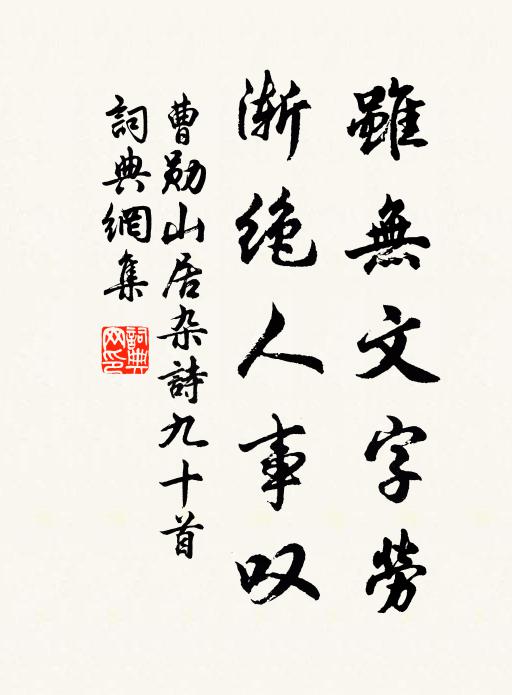 雖無文字勞
漸絶人事叹
曹勋山居杂詩九十首
詞典網集
詞典
网印